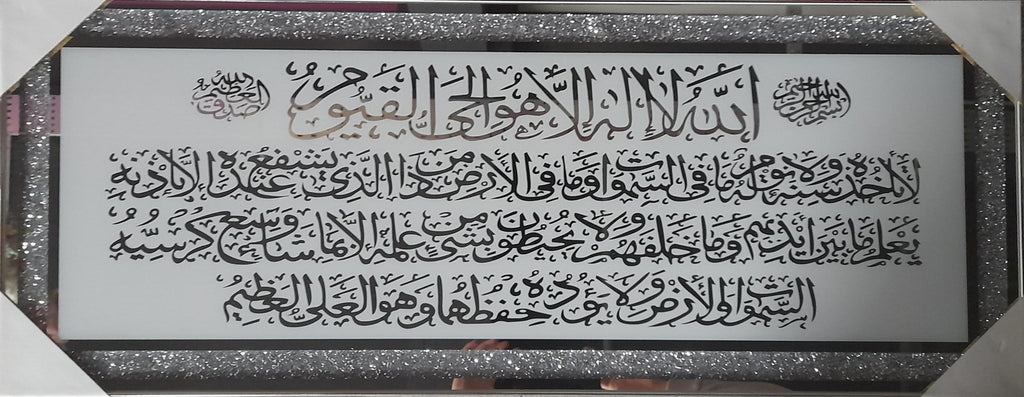 بسم الله الرحمن الرحيم
الله لا إله إلا هو الحي القيوم
صدق الله العظيم
لا تأخذه سنة ولا نوم له ما في السموات وما في الأرض من ذا الذي يشفع عنده إلا بإذنه
يعلم ما بين أيديهم وما خلفهم ولا يحيطون بشيء من علمه إلا بما شاء وسع كرسيه
السموات والأرض ولا يؤده حفظهما وهو العلي العظيم